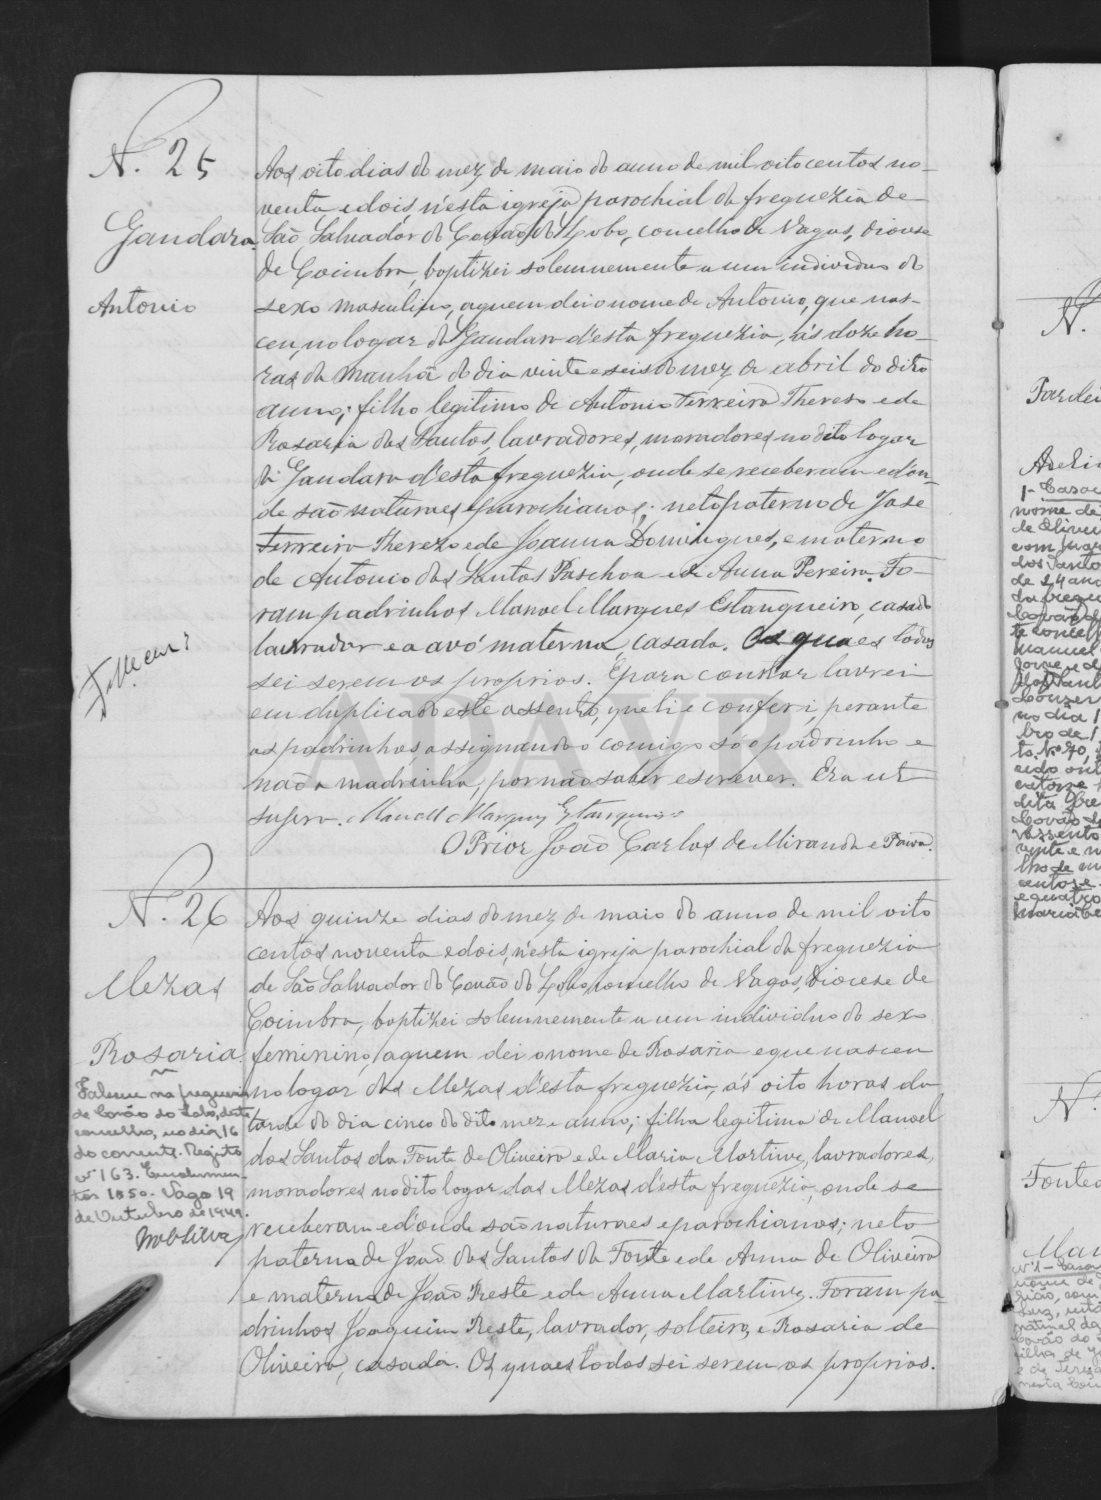 N. 25
Gandara.
Antonio
Falleceu
Aos oito dias do mez de maio do anno de mil oito centos no-
venta e dois, n'esta igreja parochial da freguezia de
São Salvador do Covão do Lobo, concelho de Vagos, diocese
de Coimbra, baptizei solemnemente a um individuo do
sexo masculino, a quem dei o nome de Antonio, que nas-
ceu, no logar da Gandara d'esta freguezia, ás doze ho-
ras da manhã do dia vinte e seis do mez de abril do dito
anno; filho legitimo de Antonio Ferreira Thereso e de
Rosaria dos Santos, lavradores, moradores no dito logar
da Gandara d'esta freguezia, onde se receberam e d'on-
de são naturaes e parochianos; neto paterno de José
Ferreira Therezo e de Joanna Domingues, e materno
de Antonio dos Santos Paschoa e de Anna Pereira. Fo-
ram padrinhos Manoel Marques Estanqueiro, casado
lavrador e a avó materna, casada. Os quaes todos
sei serem os proprios. E para constar lavrei
em duplicado este assento, que li e conferi, perante
os padrinhos, assignando comigo só o padrinho e
não a madrinha, por não saber escrever. Era ut
supra. Manoel Marques Estanqueiro
O Prior João Carlos de Miranda e Paiva.
N. 26
Mezas
Rosaria
Faleceu na freguezia
de Covão do Lobo, deste
concelho, no dia 16
do corrente. Registo
nº 163. Emolumen-
tos 1$50. Vagos 19
de Outubro de 1949.
Aos quinze dias do mez de maio do anno de mil oito
centos noventa e dois, n'esta igreja parochial da freguezia
de São Salvador do Covão do Lobo, concelho de Vagos, Diocese de
Coimbra, baptizei solemnemente a um individuo do sexo
feminino, a quem dei o nome de Rosaria e que nasceu
no logar das Mezas d'esta freguezia, ás oito horas da
tarde do dia cinco do dito mez e anno; filha legitima de Manoel
dos Santos da Fonte de Oliveira e de Maria Martins, lavradores,
moradores no dito logar das Mezas d'esta freguezia, onde se
receberam e d'onde são naturaes e parochianos; neto
paterna de João dos Santos da Fonte e de Anna de Oliveira
e materna de João Reste e de Anna Martins. Foram pa-
drinhos Joaquim Reste, lavrador, solteiro, e Rosaria de
Oliveira, casada. Os quaes todos sei serem os proprios.
ADAVR
N.
N.